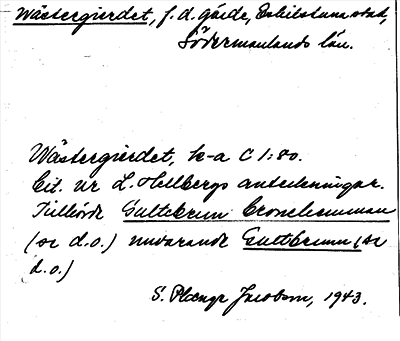 Wästergierdet, f.d. gärde, Eskilstuna stad,
Södermanlands län.
Wästergierdet, k-a C 1:80.
Cit. ur L. Hellbergs anteckningar.
Tillhörde Gultebrun
(se d.o.) nuvarande Gultbrunn (se
d.o.)
S. Jacobson, 1943.